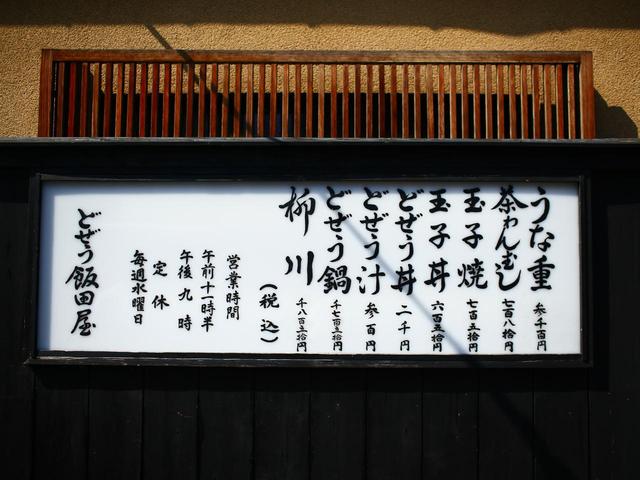 うな重 参千百円
茶わんむし 七百八拾円
玉子焼 七百五拾円
玉子丼 六百五拾円
どぜう丼 二千円
どぜう汁 参百円
どぜう鍋 千七百五拾円
柳川 千八百五拾円
(税込)
営業時間
午前十一時半
午後九時
定休
毎週水曜日
どぜう飯田屋